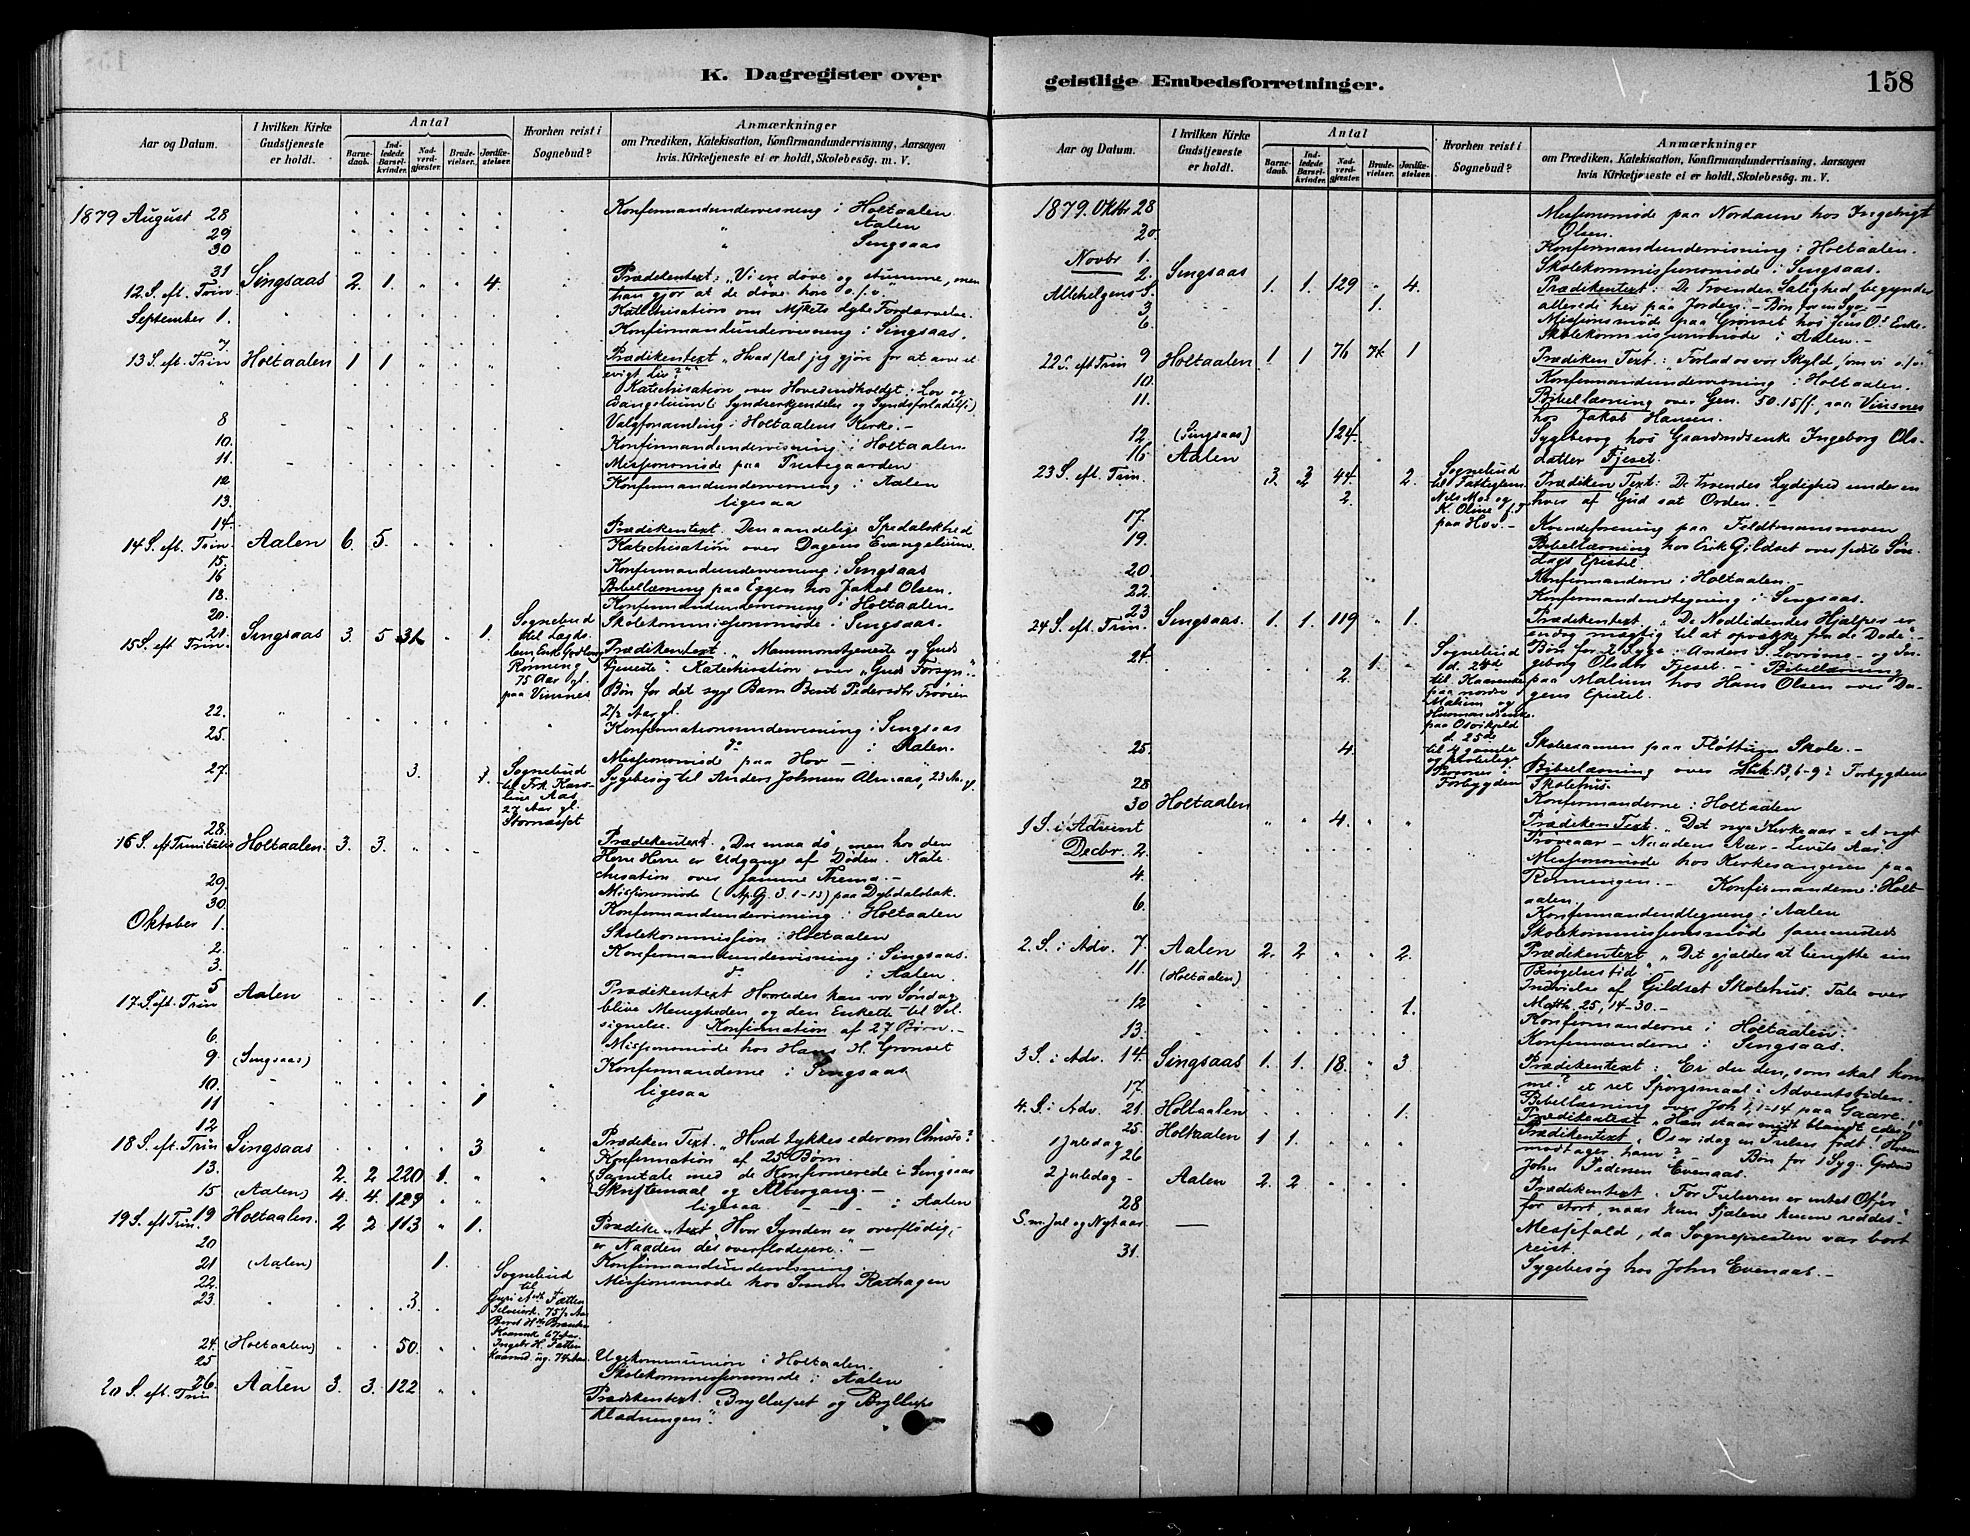 K. Dagregister over
geistlige Embedsforretninger.
158
Aar og Datum.
I hvilken Kirke Gudstjeneste er holdt.
Antal
Barnedaab.
Indledede Barselkvinder.
Nadverdgjæster.
Brudevielser.
Jordfæstelser.
Hvorhen reist i Sognebud?
Anmærkninger
om Prædiken, Katekisation, Konfirmandundervisning, Aarsagen
hvis Kirketjeneste ei er holdt, Skolebesøg. m. V.
1879 August 28 Konfirmandundervisning i Holtaalen
29 " Aalen
30 " Singsaas
31
12 S. eft. Trin Singsaas 2. 1. 4. Prædikentext: "Vi ere døve og stumme, men
han gjør at de døve høre o.s.v."
September 1. Katechisation om
Konfirmandundervisning i Singsaas.
7
13 S. eft. Trin Holtaalen 1 1 Prædikentext "Hvad skal jeg gjøre for at arve et
evigt Liv?"
Katechisation over Hovedindholdet i Lov og
Evangelium (: Syndserkjendelse og Syndsforladelse)
8 Valgforsamling i Holtaalens Kirke. -
10. Konfirmandundervisning i Holtaalen.
11. Missionsmøde paa
12 Konfirmandundervisning i Aalen
13. ligesaa
14.
14 S. eft. Trin. Aalen 6. 5. Prædikentext. Den aandelige Spedalskhed
Katechisation over Dagens Evangelium.
15. Konfirmandundervisning i Singsaas
16 Bibellæsning paa Eggen hos Jakob Olsen.
18. Konfirmandundervisning i Holtaalen.
20. Skolekommissionsmøde i Singsaas.
21.
15 S. eft Trin. Singsaas 3. 5 31. 1. Sognebud
til Lægds-
Rønning
75 Aar gl.
paa Vinsnes
Prædikentext. "Mammonstjeneste og Guds
Tjeneste". Katechisation over "Guds Forsyn".
Bøn for det syge Barn Berit
2½ Aar gl.
22. Konfirmationsundervisning i Singsaas
25. do i Aalen.
Missionsmøde paa Hov -
27. 3. 1. Sognebud
til Frk Karo-
line Aas
27 Aar gl.
Sygebesøg til Anders Johnsen
28.
16 S. eft Trinitatis Holtaalen. 3. 3. Prædikentext. "Du maa dø, men hos den
Herre Herre er Udgange af Døden. Kate-
chisation over samme Thema. -
29. Missionsmøde (Ap.G. 3. 1-13) paa Dybdalsbak.
30. Konfirmandundervisning i Holtaalen
Oktober 1. Skolekommission i Holtaalen
2. Konfirmandundervisning i Singsaas.
3. do i Aalen
5
17 S. eft. Trin Aalen 1. Prædikentext Hvorledes kan vor Søndag
blive Menigheden og den Enkelte til Vel-
signelse. Konfirmation af 27 Børn. -
6. Missionsmøde hos Hans H. Grønset
9 (Singsaas) Konfirmanderne i Singsaas
10. ligesaa
11 1
12
18 S. eft. Trin Singsaas 3 Prædiken Text. "Hvad tykkes eder om Christo?"
Konfirmation af 25 Børn.
13. 2. 2 220 1. Samtale med de Konfirmerede i Singsaas
15 (Aalen) 4. 4. 129 Skriftemaal og Altergang. -
ligesaa - - - i Aalen
19 S. eft Trin. 19 Holtaalen. 2 2 113 1. Prædikentext Hvor Synden er overflødig,
er Naaden des overflødigere." -
20 Konfirmandundervisning.
21 (Aalen) 1. Missionsmøde hos Simon Rathagen
22.
23. 3. Sognebud
til
24. (Holtaalen) 50. Ugekommunion i Holtaalen.
25 Skolekommissionsmøde i Aalen
20 S. eft. Trin 26. Aalen 3. 3. 122 Prædikentext. "Bryllupet og Bryllups
klædningen".
Aar og Datum.
I hvilken Kirke Gudstjeneste er holdt.
Antal
Barnedaab.
Indledede Barselkvinder.
Nadverdgjæster.
Brudevielser.
Jordfæstelser.
Hvorhen reist i Sognebud?
Anmærkninger
om Prædiken, Katekisation, Konfirmandundervisning, Aarsagen
hvis Kirketjeneste ei er holdt, Skolebesøg. m. V.
1879. Oktbr 28 Missionsmøde paa Nordaune hos Ingebrigt
Olsen.
Konfirmandundervisning i Holtaalen.
Novbr 1. Skolekommissionsmøde i Singsaas.
2. Singsaas 1. 1. 129 4. Prædikentext: De Troendes Salighed begynder
Allehelgens S. allerede her paa Jorden. - Bøn for en Syg.
3. 1. Missionsmøde paa Grønset hos Jens Enke.
6. Skolekommissionsmøde i Aalen. -
22 S. eft Trin 9 Holtaalen 1 1 76 1 Prædiken Text: "Forlad os vor Skyld, som vi o.s.v."
10. Konfirmandundervisning i Holtaalen.
11. Bibellæsning over Gen. 50. 15ff. paa Vinsnes
hos Jakob Hansen.
12 (Singsaas) 124. Sygebesøg hos Gaardmdsenke Ingeborg Ols-
datter Fjeset.
16 Aalen
23 S. eft. Trin. 3. 3 44 2. Sognebud
Prædiken Text: De Troendes Lydighed under en
hver af Gud sat Orden. -
2.
17. Kvindeforening paa
19. Bibellæsning hos Erik Gildset over sidste Søn-
dags Epistel.
20. Konfirmanderne i Holtaalen. -
22. Konfirmandudtegning i Singsaas.
23
24 S. eft. Trin. Singsaas. 1. 1. 119 1. Prædikentext: "De Nødlidendes Hjælper er
endog mægtig til at opvække fra de Døde". -
24. 1. Sognebud
d. 24d
Bøn for 2 Syge: Anders og In-
geborg Olsdtr Fjeset. - Bibellæsning
2. paa Malium hos Hans Olsen over Da-
gens Epistel.
d. 25de
til 4 gamle
25. 4. Skoleexamen paa Fløttum Skole. -
Forbygden
Bibellæsning over Luk. 13, 6-9 i Forbygdens
Skolehus.
28 Konfirmanderne i Holtaalen
30 Holtaalen
1 S. i Advent 4. Prædiken Text. "Det nye Kirkeaar - et nyt
Prøveaar - Naadens Aar - Livets Aar."
Decbr. 2. Missionsmøde hos Kirkesangeren paa
4. Rønningen. - Konfirmanderne i Holt-
aalen
6. Konfirmandudtegning i Aalen
Skolekommissionsmøde sammesteds
2. S. i Adv. 7 Aalen 2. 2 2. Prædikentext "Det gjælder at benytte sin
Besøgelsestid"
11. (Holtaalen) Indvielse af Gildset Skolehus. Tale over
Matth. 25, 14-30. -
12 1. Konfirmanderne i Holtaalen.
13. Konfirmanderne i Singsaas.
3 S. i Adv. 14. Singsaas 1. 1. 18. 3 Prædikentext: "Er du den, som skal kom-
me? et ret Spørgsmaal i Adventstiden.
17. Bibellæsning over Joh 1, 1-14 paa Gaare.
4. S. i Adv. 21. Holtaalen 1. Prædikentext "Han staar midt blandt eder!"
25 Holtaalen 1 1. Prædikentext "Os er idag en Frelser født! Hvem
1 Juledag modtager ham? - Bøn for 1 Syg.
26 John Pedersen Evenaas.
2 Juledag - Aalen 2. 2 Prædikentext. "For Frelseren er intet Offer
for stort, naar kun Sjælene kunne reddes"
28
S. m. Jul og Nytaar Messefald, da Sognepresten var bort
reist.
31. Sygebesøg hos John Evenaas. -